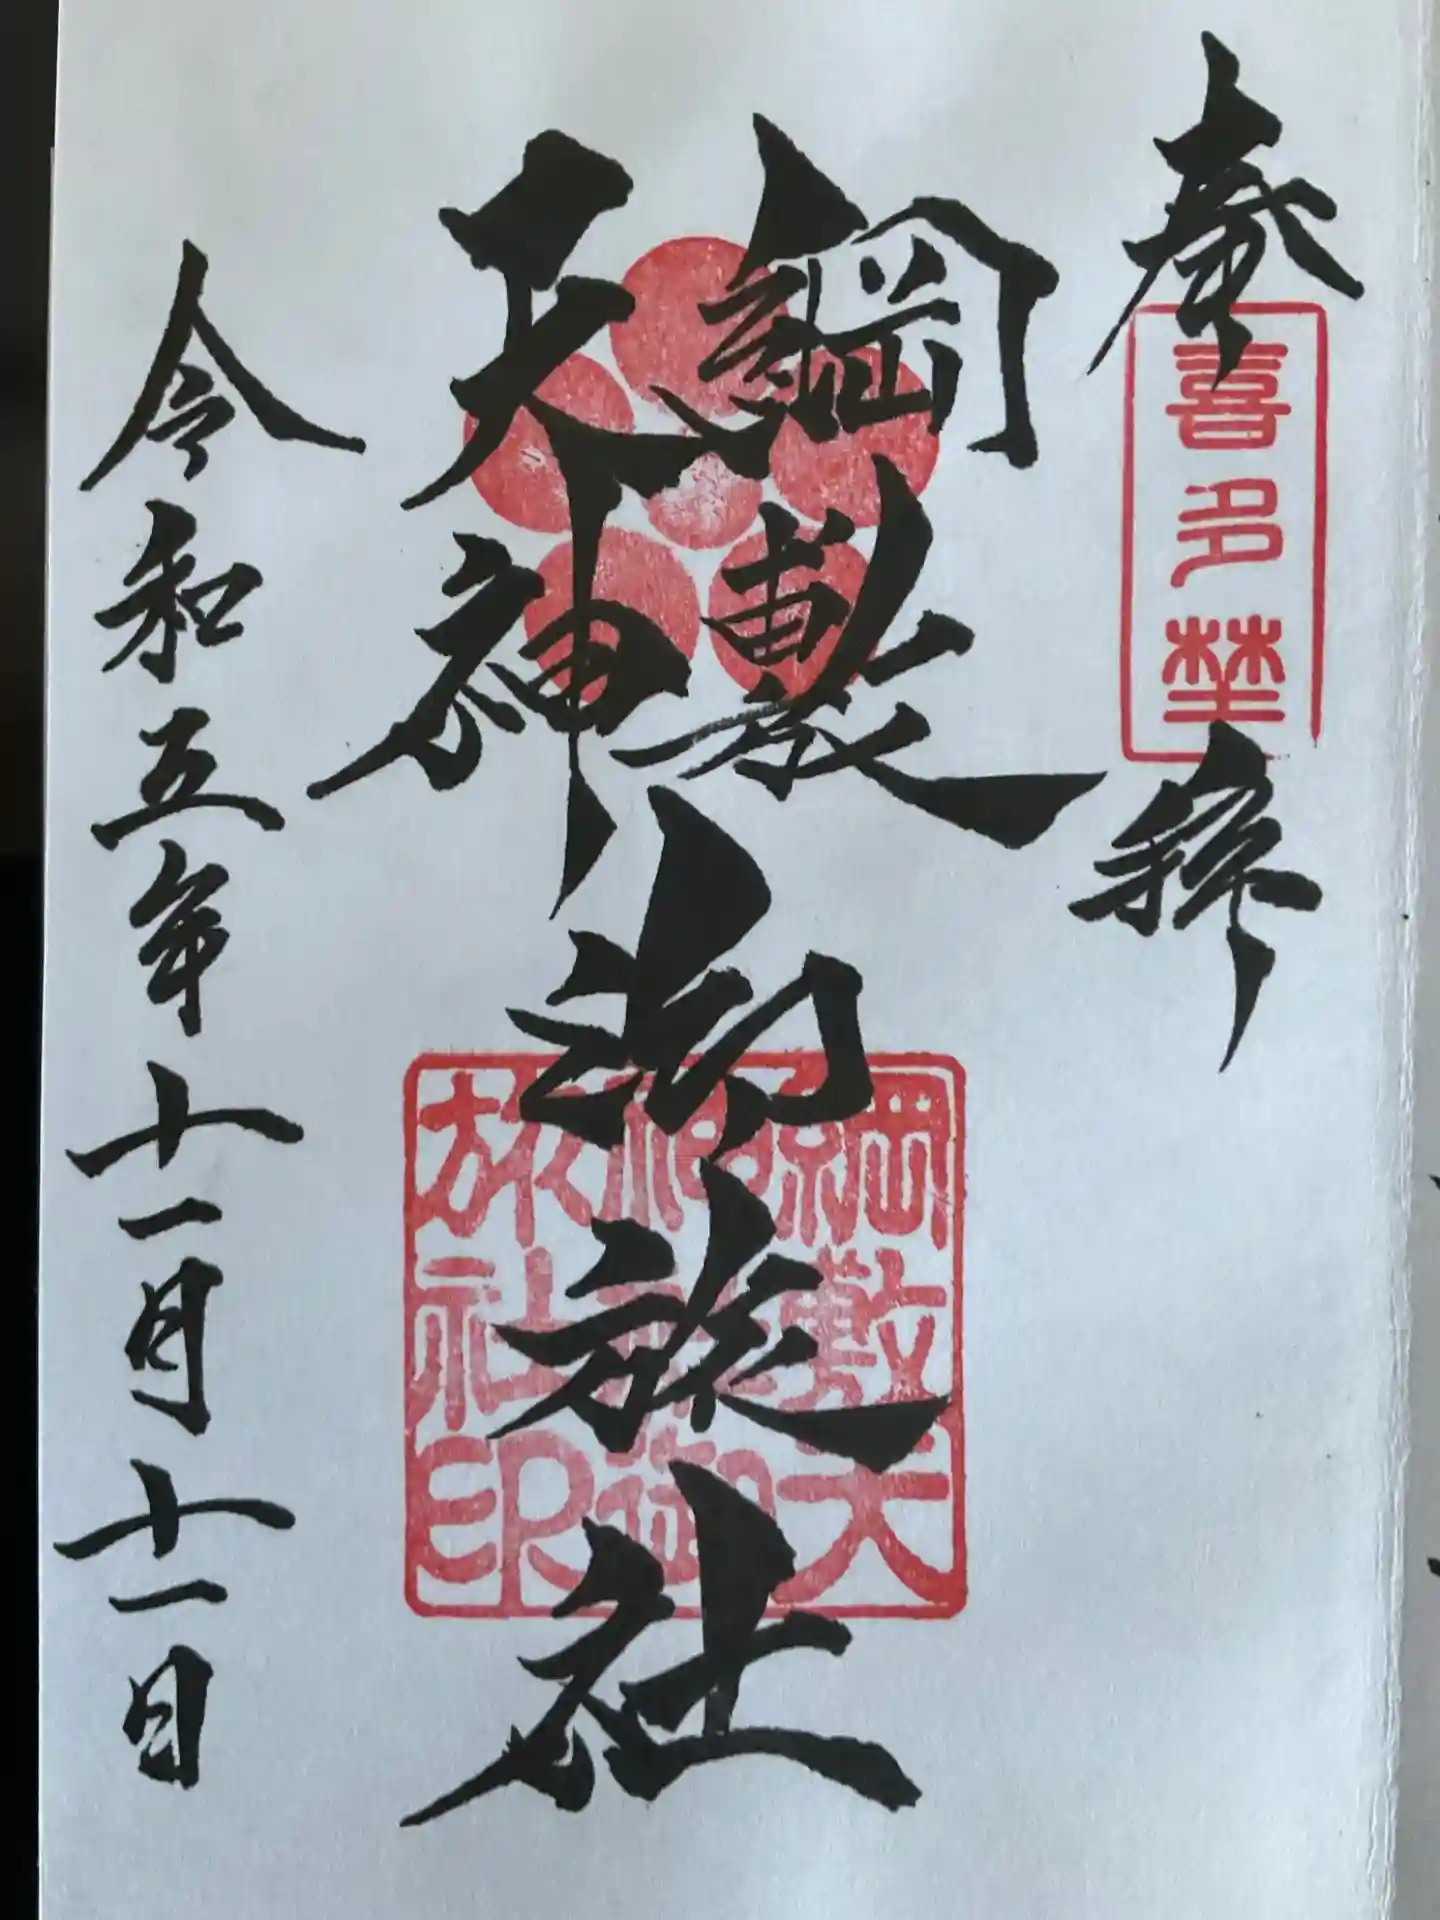 奉拝
喜多埜
綱敷
天神
御旅社
綱敷天
神社御
旅社印
令和五年十一月十一日